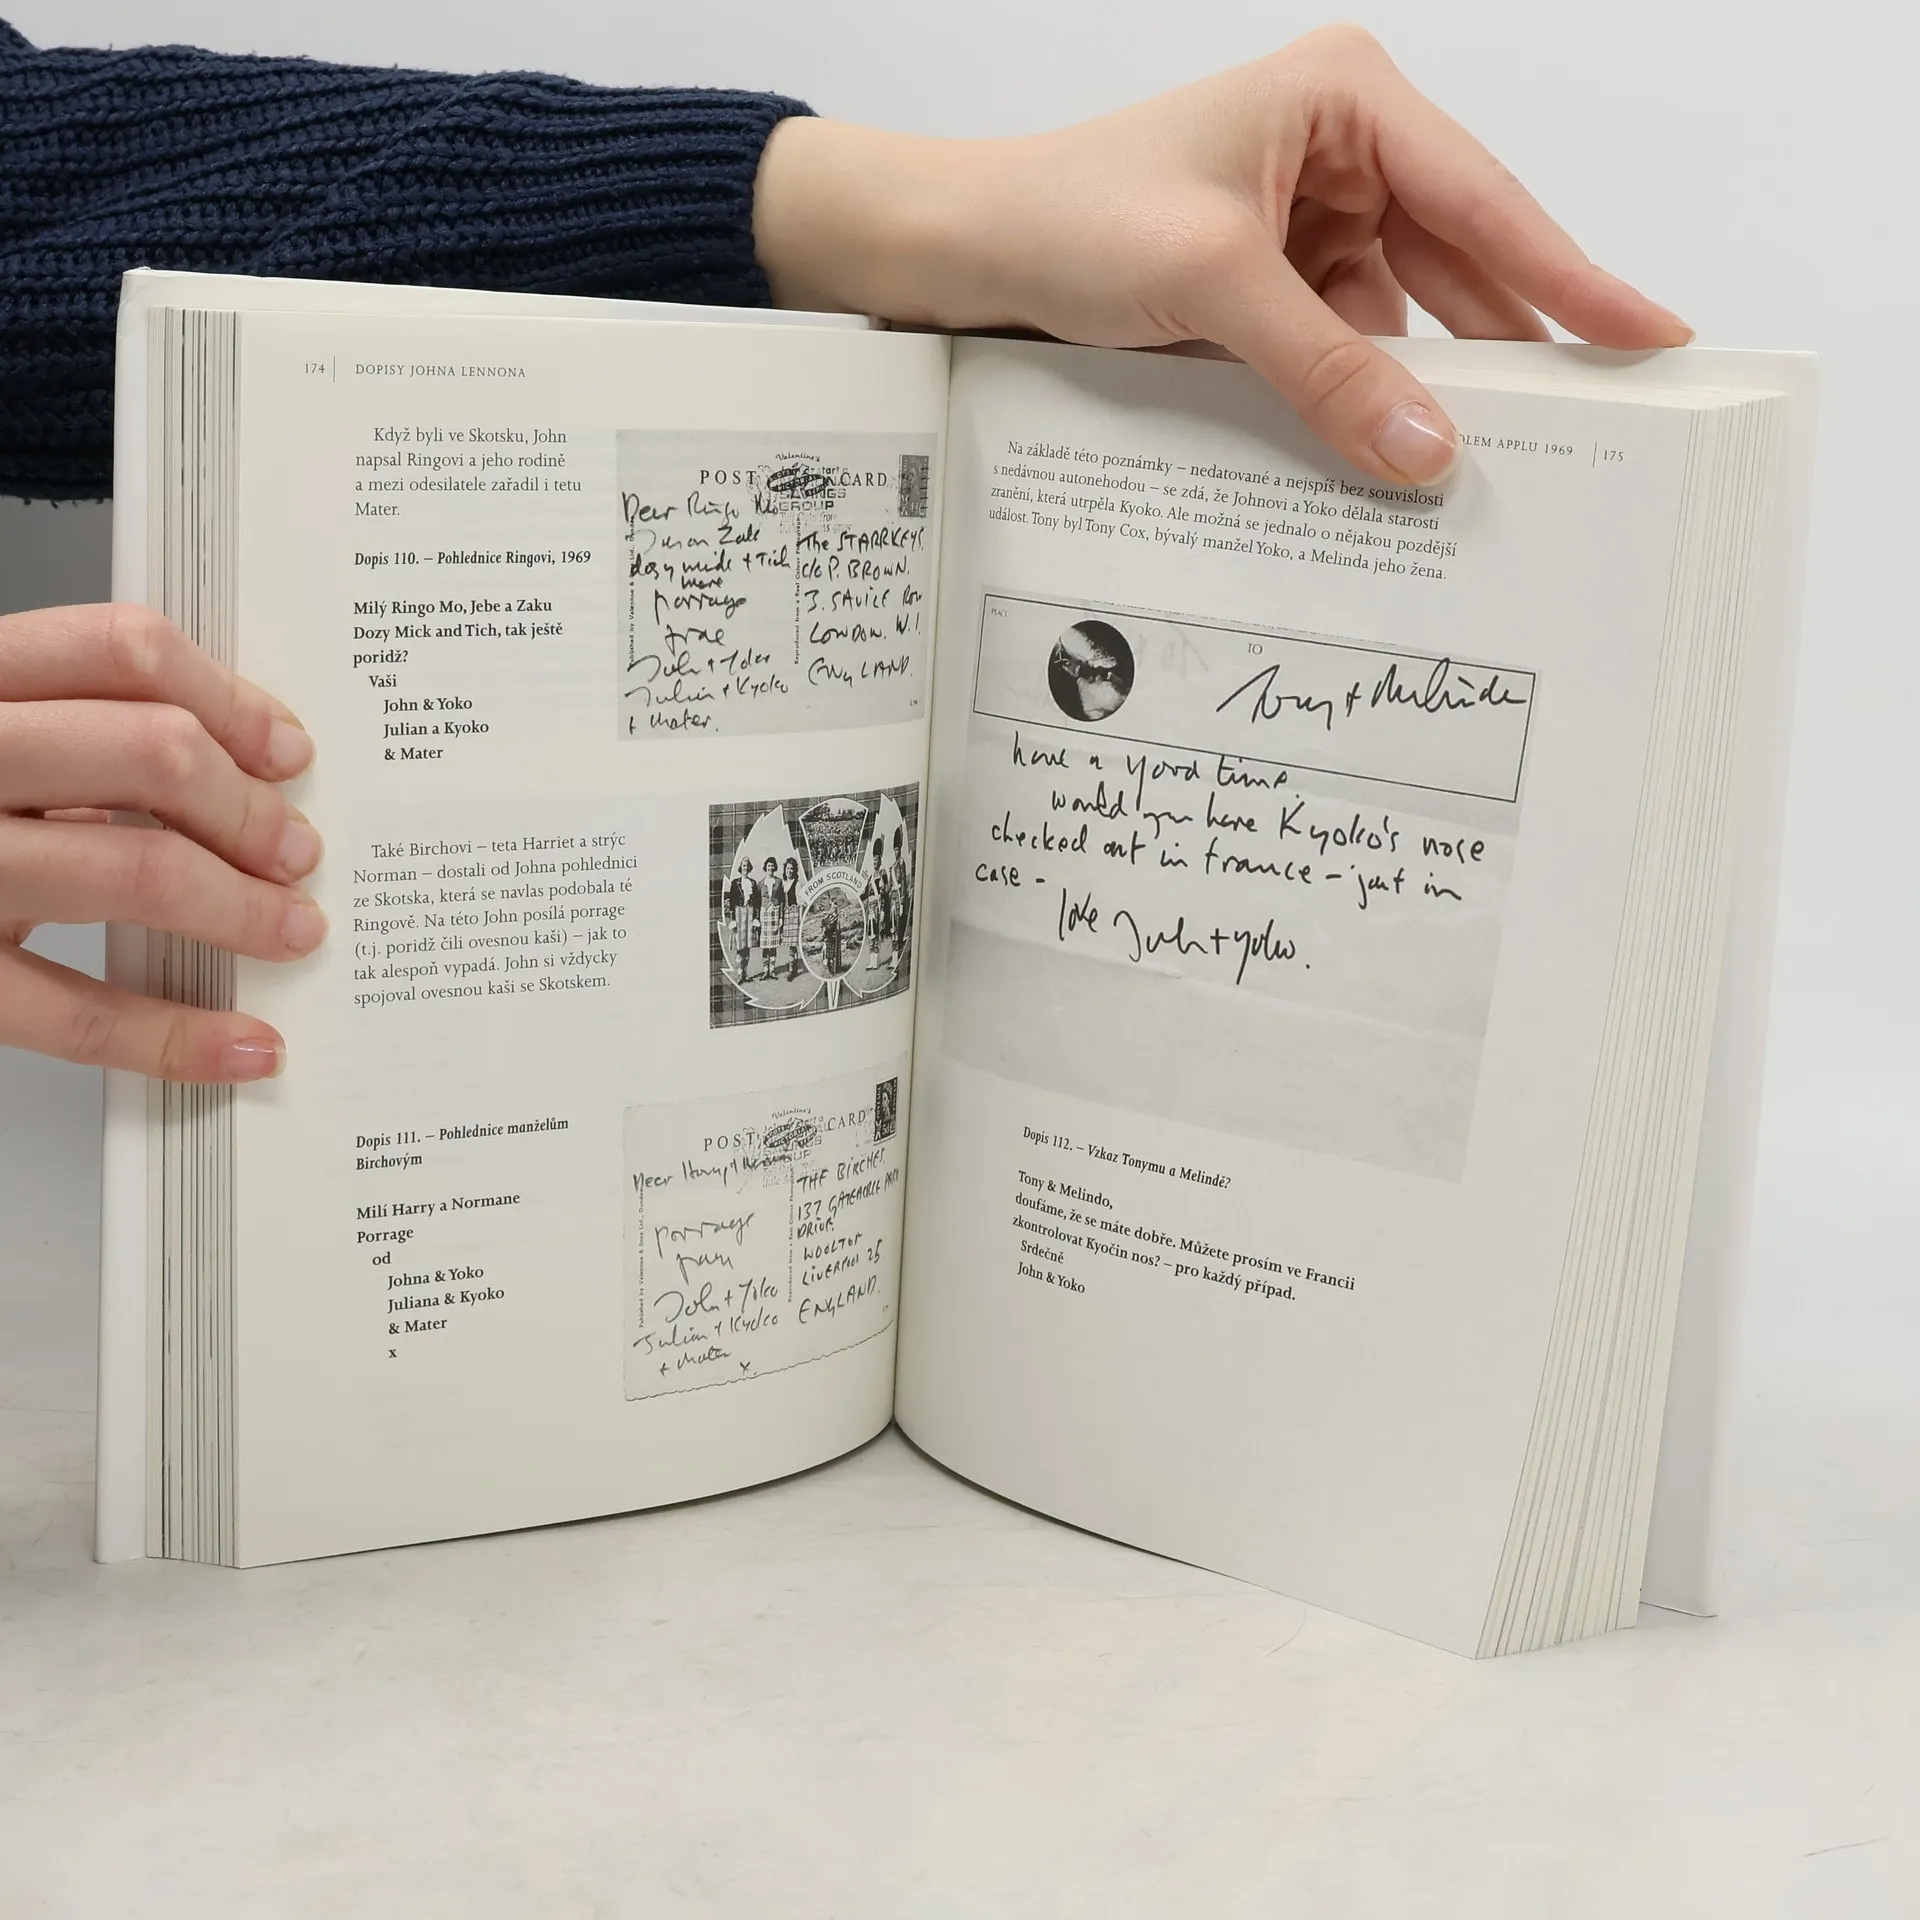 174 | DOPISY JOHNA LENNONA
Když byli ve Skotsku, John
napsal Ringovi a jeho rodině
a mezi odesilatele zařadil i tetu
Mater.
Dopis 110. – Pohlednice Ringovi, 1969
Milý Ringo Mo, Jebe a Zaku
Dozy Mick and Tich, tak ještě
poridž?
Vaši
John & Yoko
Julian a Kyoko
& Mater
Valentine's
POST CARD
Dear Ringo Mo
Zak
dozy mick + Tich
more
porrage
John + Yoko
Julian + Kyoko
+ Mater.
The STARKEYS.
c/o P. BROWN.
3. SAVILE Row
LONDON. W.1.
ENGLAND.
Také Birchovi – teta Harriet a strýc
Norman – dostali od Johna pohlednici
ze Skotska, která se navlas podobala té
Ringově. Na této John posílá porrage
(t.j. poridž čili ovesnou kaši) – jak to
tak alespoň vypadá. John si vždycky
spojoval ovesnou kaši se Skotskem.
FROM SCOTLAND
Dopis 111. – Pohlednice manželům
Birchovým
Milí Harry a Normane
Porrage
od
Johna & Yoko
Juliana & Kyoko
& Mater
x
Valentine's
POST CARD
Dear Harry +
porrage
from
John + Yoko
Julian + Kyoko
+ Mater
x.
THE BIRCHES.
137 GATEACRE PARK
DRIVE
WOOLTON
LIVERPOOL 25
ENGLAND.
OLEM APPLU 1969 | 175
Na základě této poznámky – nedatované a nejspíš bez souvislosti
s nedávnou autonehodou – se zdá, že Johnovi a Yoko dělala starosti
zranění, která utrpěla Kyoko. Ale možná se jednalo o nějakou pozdější
událost. Tony byl Tony Cox, bývalý manžel Yoko, a Melinda jeho žena.
PEACE
TO
Tony + Melinda
have a good time.
would you have Kyoko's nose
checked out in france – just in
case –
love John + yoko.
Dopis 112. – Vzkaz Tonymu a Melindě?
Tony & Melindo,
doufáme, že se máte dobře. Můžete prosím ve Francii
zkontrolovat Kyočin nos? – pro každý případ.
Srdečně
John & Yoko